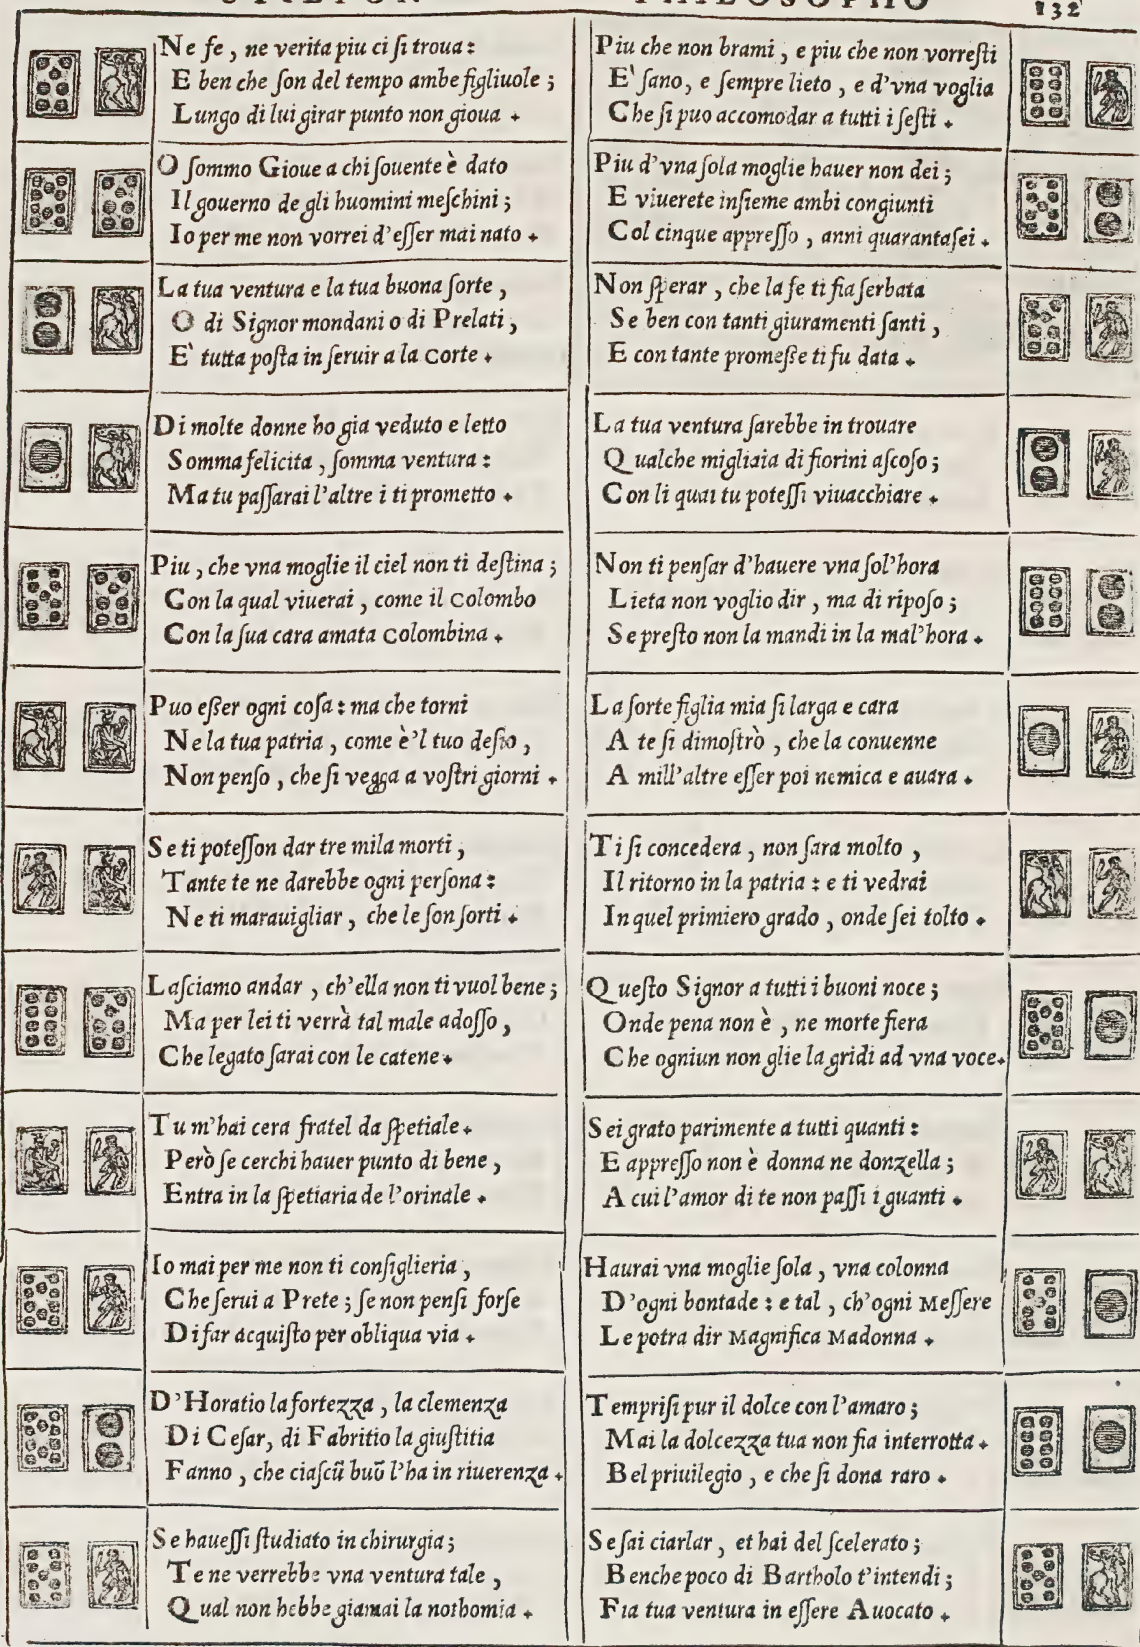 PHILOSOPHO
132
Ne fe, ne verita piu ci ſi troua:
E ben che ſon del tempo ambe figliuole;
Lungo di lui girar punto non gioua.
O ſommo Gioue a chi ſouente è dato
Il gouerno de gli huomini meſchini;
Io per me non vorrei d'eſſer mai nato.
La tua ventura e la tua buona ſorte,
O di Signor mondani o di Prelati,
E' tutta poſta in ſeruir a la Corte.
Di molte donne ho gia veduto e letto
Somma felicita, ſomma ventura:
Ma tu paſſarai l'altre i ti prometto.
Piu, che vna moglie il ciel non ti deſtina;
Con la qual viuerai, come il Colombo
Con la ſua cara amata Colombina.
Puo eſſer ogni coſa: ma che torni
Ne la tua patria, come è'l tuo deſio,
Non penſo, che ſi vegga a voſtri giorni.
Se ti poteſſon dar tre mila morti,
Tante te ne darebbe ogni perſona:
Ne ti marauigliar, che le ſon ſorti.
Laſciamo andar, ch'ella non ti vuol bene;
Ma per lei ti verrà tal male adoſſo,
Che legato ſarai con le catene.
Tu m'hai cera fratel da ſpetiale.
Però ſe cerchi hauer punto di bene,
Entra in la ſpetiaria de l'orinale.
Io mai per me non ti conſiglieria,
Che ſerui a Prete; ſe non penſi forſe
Di far acquiſto per obliqua via.
D'Horatio la fortezza, la clemenza
Di Ceſar, di Fabritio la giuſtitia
Fanno, che ciaſcū buō l'ha in riuerenza.
Se haueſſi ſtudiato in chirurgia;
Te ne verrebbe vna ventura tale,
Qual non hebbe giamai la nothomia.
Piu che non brami, e piu che non vorreſti
E' ſano, e ſempre lieto, e d'vna voglia
Che ſi puo accomodar a tutti i ſeſti.
Piu d'vna ſola moglie hauer non dei;
E viuerete inſieme ambi congiunti
Col cinque appreſſo, anni quarantaſei.
Non ſperar, che la fe ti fia ſerbata
Se ben con tanti giuramenti ſanti,
E con tante promeſſe ti fu data.
La tua ventura ſarebbe in trouare
Qualche migliaia di fiorini aſcoſo;
Con li quai tu poteſſi viuacchiare.
Non ti penſar d'hauere vna ſol'hora
Lieta non voglio dir, ma di ripoſo;
Se preſto non la mandi in la mal'hora.
La ſorte figlia mia ſi larga e cara
A te ſi dimoſtrò, che la conuenne
A mill'altre eſſer poi nemica e auara.
Ti ſi concedera, non ſara molto,
Il ritorno in la patria: e ti vedrai
In quel primiero grado, onde ſei tolto.
Queſto Signor a tutti i buoni noce;
Onde pena non è, ne morte fiera
Che ogniun non glie la gridi ad vna voce.
Sei grato parimente a tutti quanti:
E appreſſo non è donna ne donzella;
A cui l'amor di te non paſſi i guanti.
Haurai vna moglie ſola, vna colonna
D'ogni bontade: e tal, ch'ogni Meſſere
Le potra dir Magnifica Madonna.
Tempriſi pur il dolce con l'amaro;
Mai la dolcezza tua non fia interrotta.
Bel priuilegio, e che ſi dona raro.
Se ſai ciarlar, et hai del ſcelerato;
Benche poco di Bartholo t'intendi;
Fia tua ventura in eſſere Auocato.